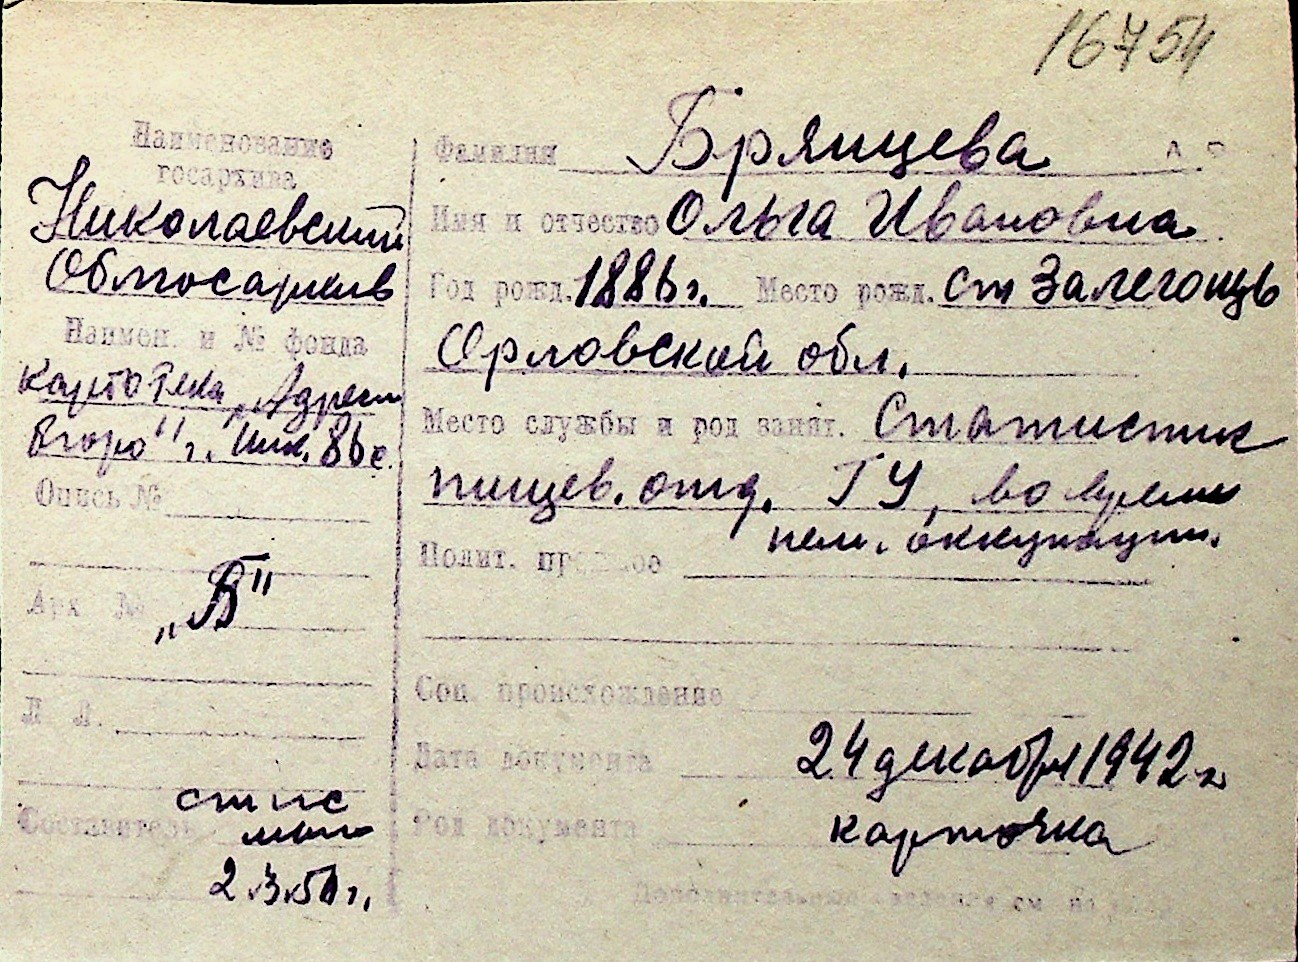 16754
Наименование
госархива
Николаевский
Облгосархив
Наимен. и № фонда
картотека „Адресн
бюро" г. Ник. 86 с.
Опись №
Арх №
„Б"
Л Л.
Составитель
2.3.50 г.
Фамилия Брянцева
Имя и отчество Ольга Ивановна
Год рожд. 1886 г. Место рожд. ст Залегощь
Орловской обл.
Место службы и род занят. Статистик
пищев. отд. ГУ, во время
нем. оккупации.
Полит. прошлое
Соц. происхождение
Дата документа 24 декабря 1942 г
Род документа карточка
Дополнительные сведения см на